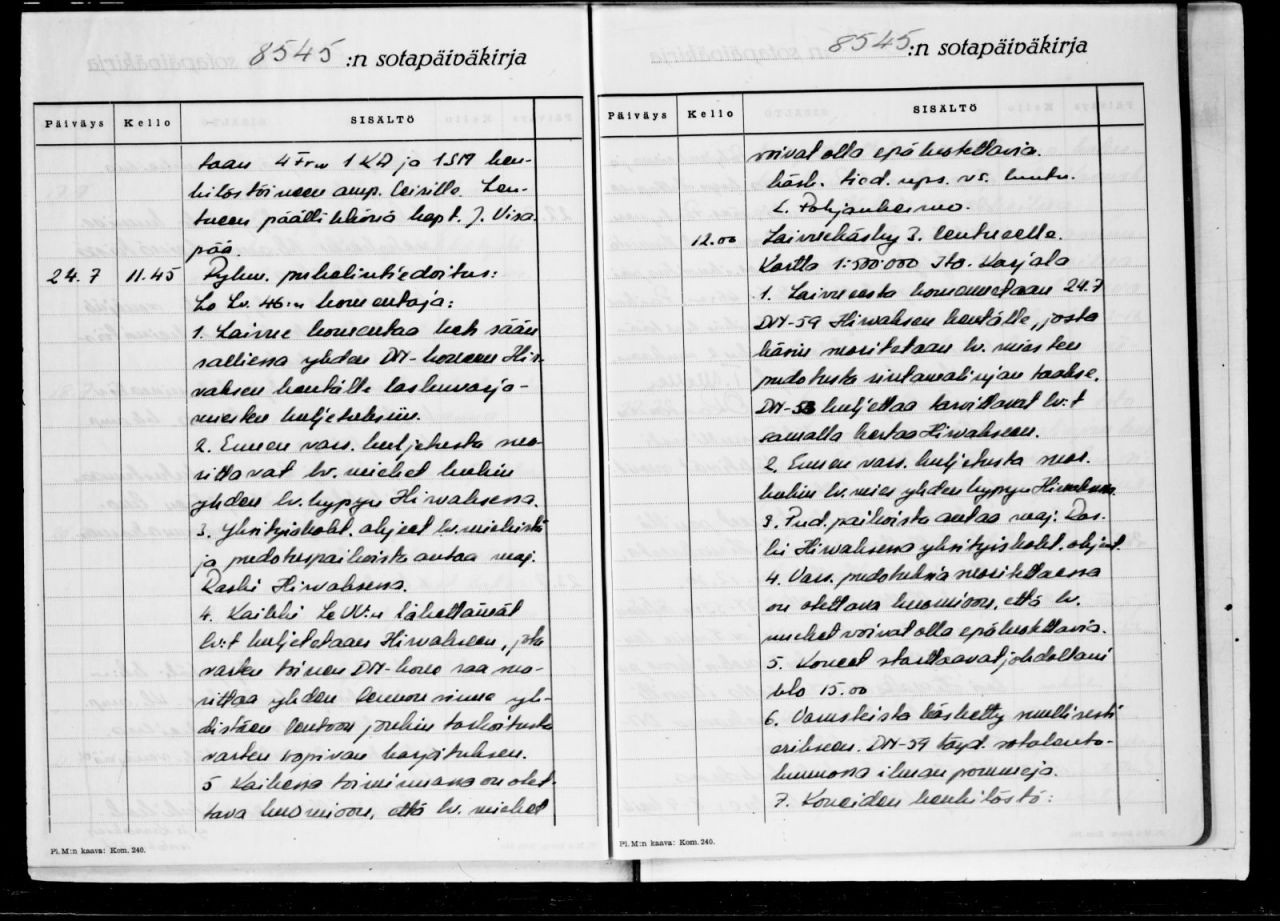 8545 :n sotapäiväkirja
Päiväys Kello SISÄLTÖ
taan 4 Frw 1 KD ja 1 SM hen-
kilöstöineen amp. Leirille. Len-
tueen päällikkönä kapt. J. Visa
pää.
24.7 11.45 Rykm. puhelintiedoitus:
Le Lv. 46:n komentaja:
1. Laivue komentaa heti sään
salliessa yhden DN-koneen Hir-
vaksen kentälle laskuvarjo-
miesten kuljetuksiin.
2. Ennen vars. kuljetusta suo-
rittavat lv. miehet kukin
yhden lv. hypyn Hirvaksessa.
3. Yksityiskoht. ohjeet lv. miehistä
ja pudotuspaikoista antaa maj.
Raski Hirvaksessa.
4. Kaikki Le VV:n lähettämät
lv:t kuljetetaan Hirvakseen, jota
varten toinen DN-kone saa suo-
rittaa yhden lennon sinne yh-
distäen lentoon johin tarkoitusta
varten sopivan harjoituksen.
5 Kaikessa toiminnassa on otet-
tava huomioon, että lv. miehet
Pl. M:n kaava: Kom. 240.
8545 :n sotapäiväkirja
Päiväys Kello SISÄLTÖ
voivat olla epäluotettavia.
käsk. tied. ups. vs. luutn.
L. Pohjanheimo
12.00 Laivuekäsky 3. lentueelle.
Kartta 1:500.000 Itä-Karjala
1. Laivueesta komennetaan 24.7
DN-59 Hirvaksen kentälle, josta
käsin suoritetaan lv. miesten
pudotusta rintamalinjan taakse.
DN-53 kuljettaa tarvittavat lv:t
samalla kertaa Hirvakseen.
2. Ennen vars. kuljetusta suor.
kukin lv. mies yhden hypyn Hirvaksessa.
3. Pud. paikoista antaa maj. Ras-
ki Hirvaksessa yksityiskoht. ohjeet.
4. Vars. pudotuksia suoritettaessa
on otettava huomioon, että lv.
miehet voivat olla epäluotettavia.
5. Koneet starttaavat johdollani
klo 15.00
6. Varusteista käsketty suullisesti
erikseen. DN-59 täyd. sotalento-
kunnossa ilman pommeja.
7. Koneiden henkilöstö:
Pl. M:n kaava: Kom. 240.